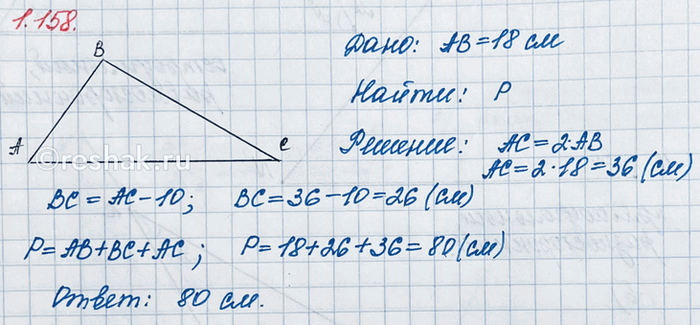 1.158.
B
A
C
Дано: AB = 18 см
Найти: P
Решение: AC = 2·AB
AC = 2·18 = 36 (см)
BC = AC - 10; BC = 36 - 10 = 26 (см)
P = AB + BC + AC; P = 18 + 26 + 36 = 80 (см)
Ответ: 80 см.
©reshak.ru